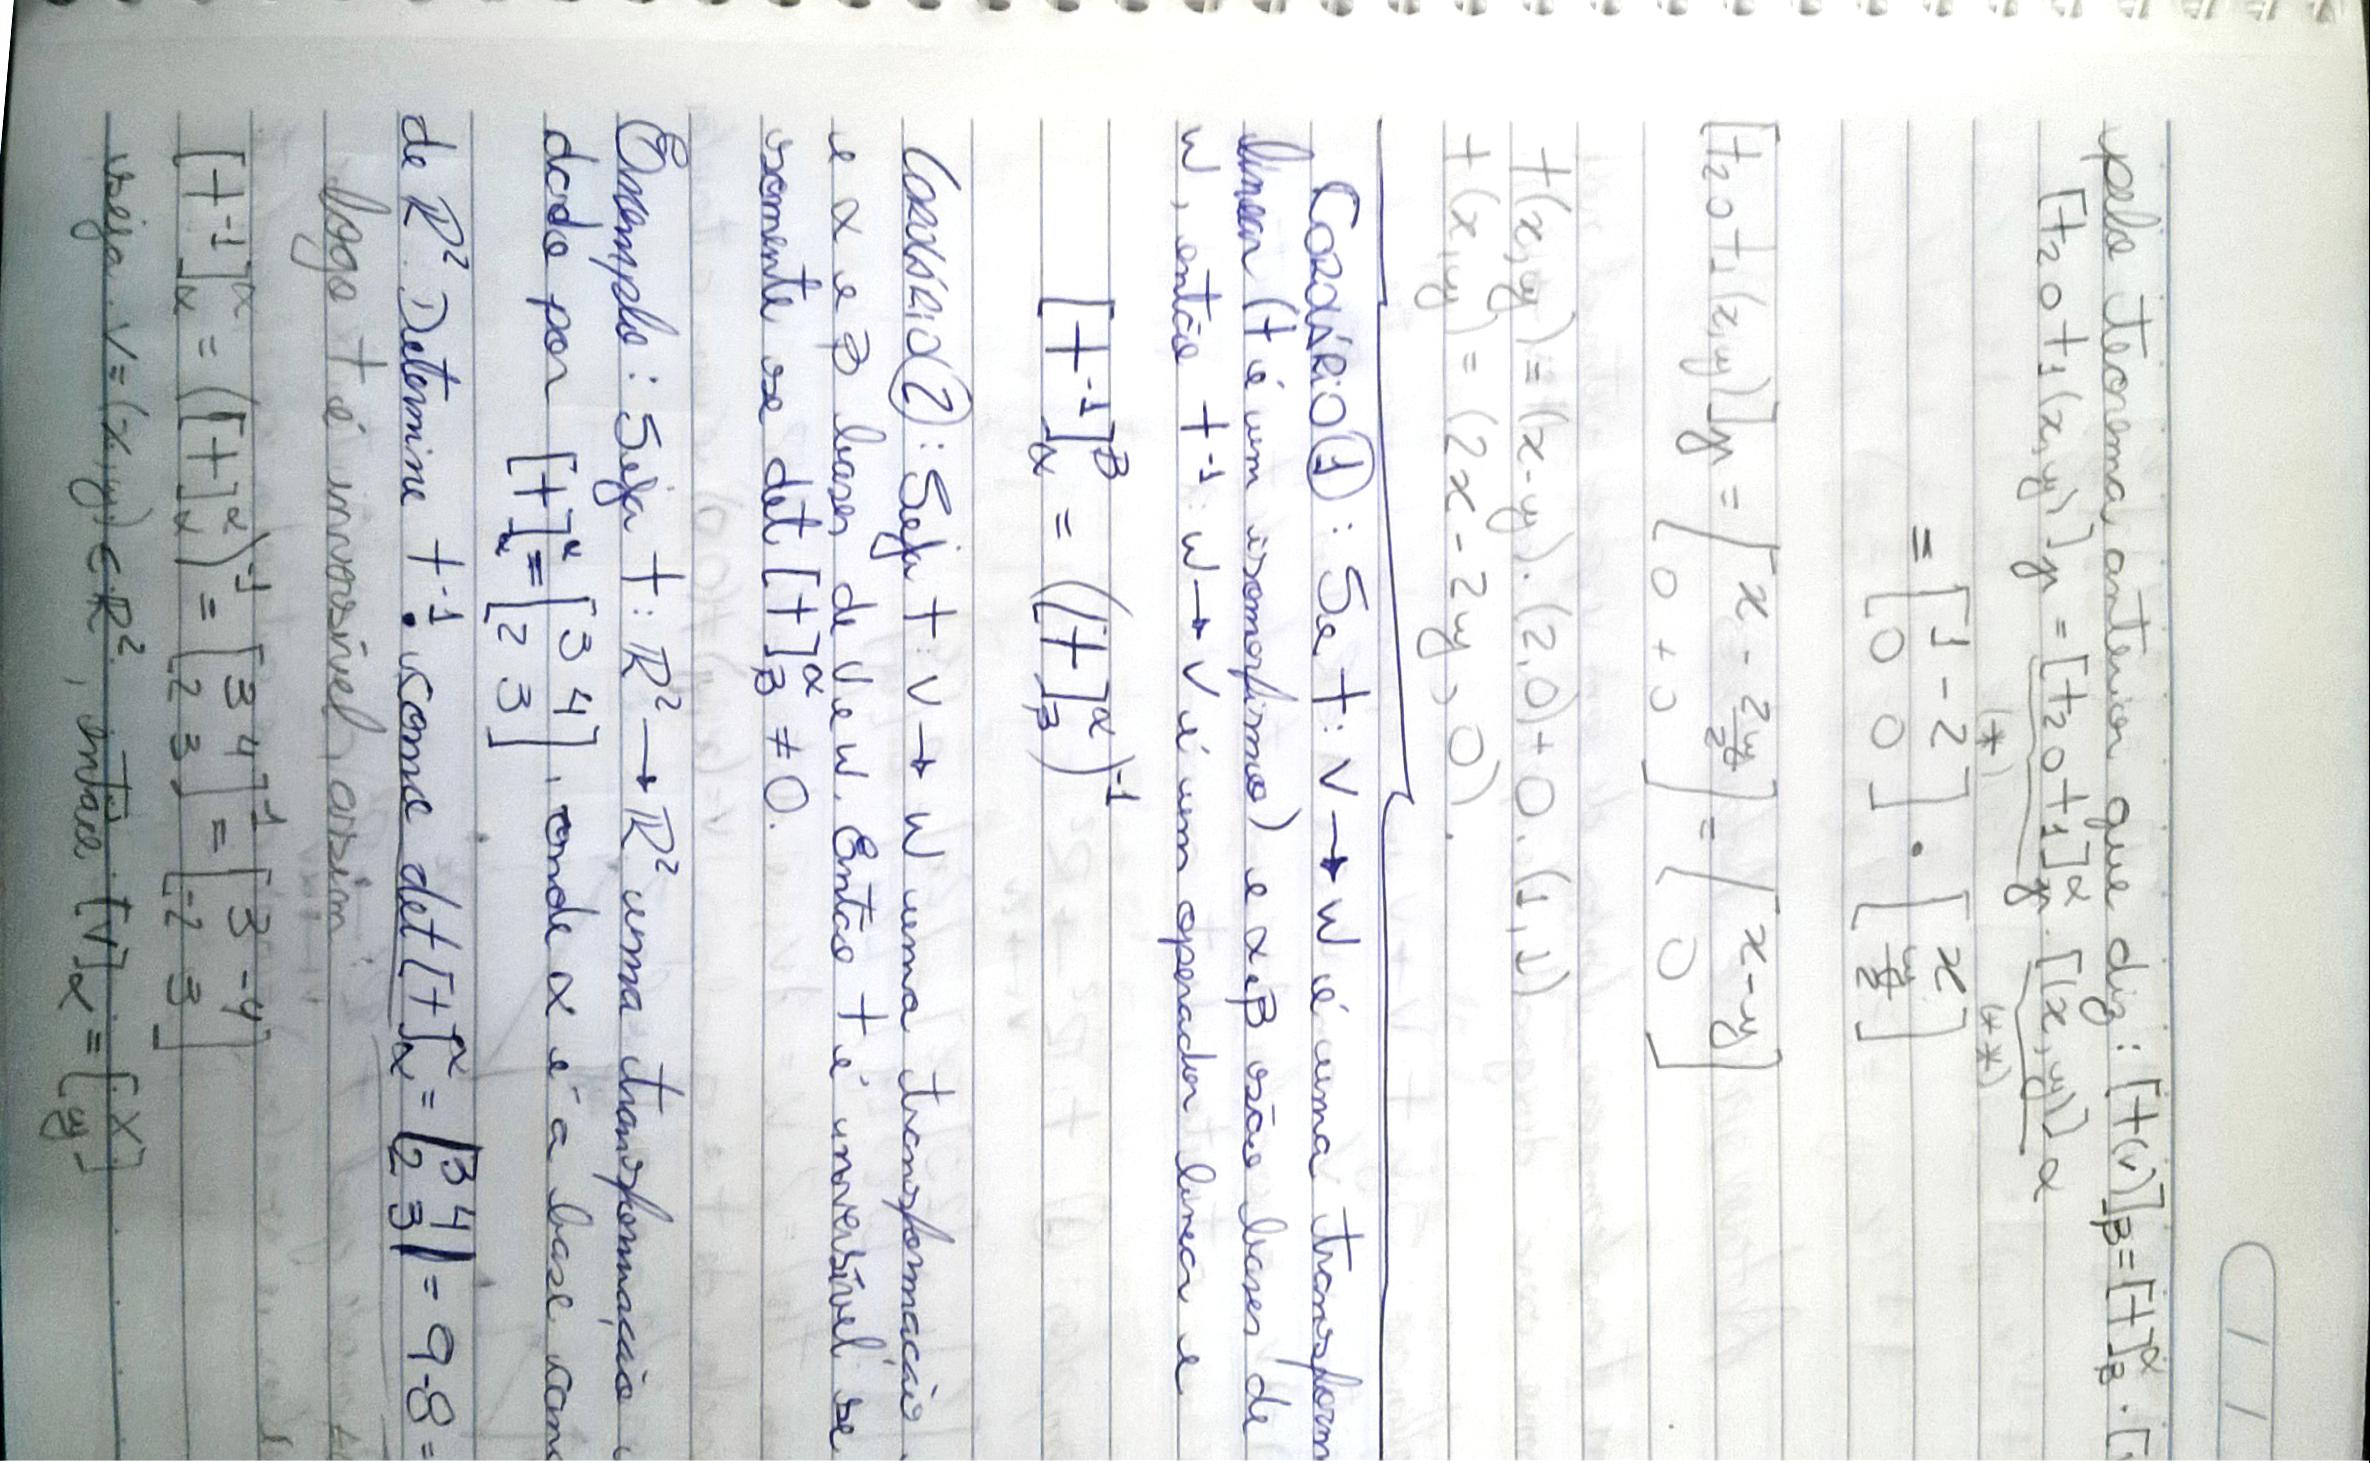 pelo teorema anterior que diz: [T(v)]β = [T]^α_β · [
[T2 o T1(x,y)]γ = [T2 o T1]^α_γ . [(x,y)]α
(*) (**)
= [1 -2; 0 0] · [x; y/2]
[T2 o T1(x,y)]γ = [x - 2y/2; 0 + 0] = [x-y; 0]
T(x,y) = (x-y).(2,0) + 0.(1,1)
T(x,y) = (2x-2y, 0).
COROLÁRIO ①: Se T: V → W é uma transform
linear (T é um isomorfismo) e α e β são bases de
W, então T^-1: W → V é um operador linear e
[T^-1]^β_α = ([T]^α_β)^-1
COROLÁRIO ②: Seja T: V → W uma transformação
e α e β bases de V e W. Então T é inversível se
somente se det [T]^α_β ≠ 0.
Exemplo: Seja T: R² → R² uma transformação
dada por [T]^α_α = [3 4; 2 3], onde α é a base can
de R². Determine T^-1. como det [T]^α_α = |3 4; 2 3| = 9-8 =
logo T é inversível, assim:
[T^-1]^α_α = ([T]^α_α)^-1 = [3 4; 2 3]^-1 = [3 -4; -2 3]
seja v = (x,y) ∈ R², então [v]α = [x; y]